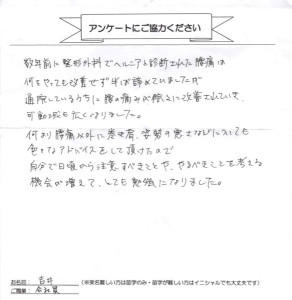 アンケートにご協力ください
数年前に整形外科でヘルニアと診断された腰痛は
何をやっても改善せず半ば諦めていましたが
通院しているうちに腰の痛みが徐々に改善されていき、
可動域も広くなりました。
何より腰痛以外に巻き肩、姿勢の悪さなどについても
色々なアドバイスをして頂けたので
自分で日頃から注意すべきことや、やるべきことを考える
機会が増えて、とても勉強になりました。
お名前: 吉井 (※実名難しい方は苗字のみ・苗字が難しい方はイニシャルでも大丈夫です)
ご職業: 会社員